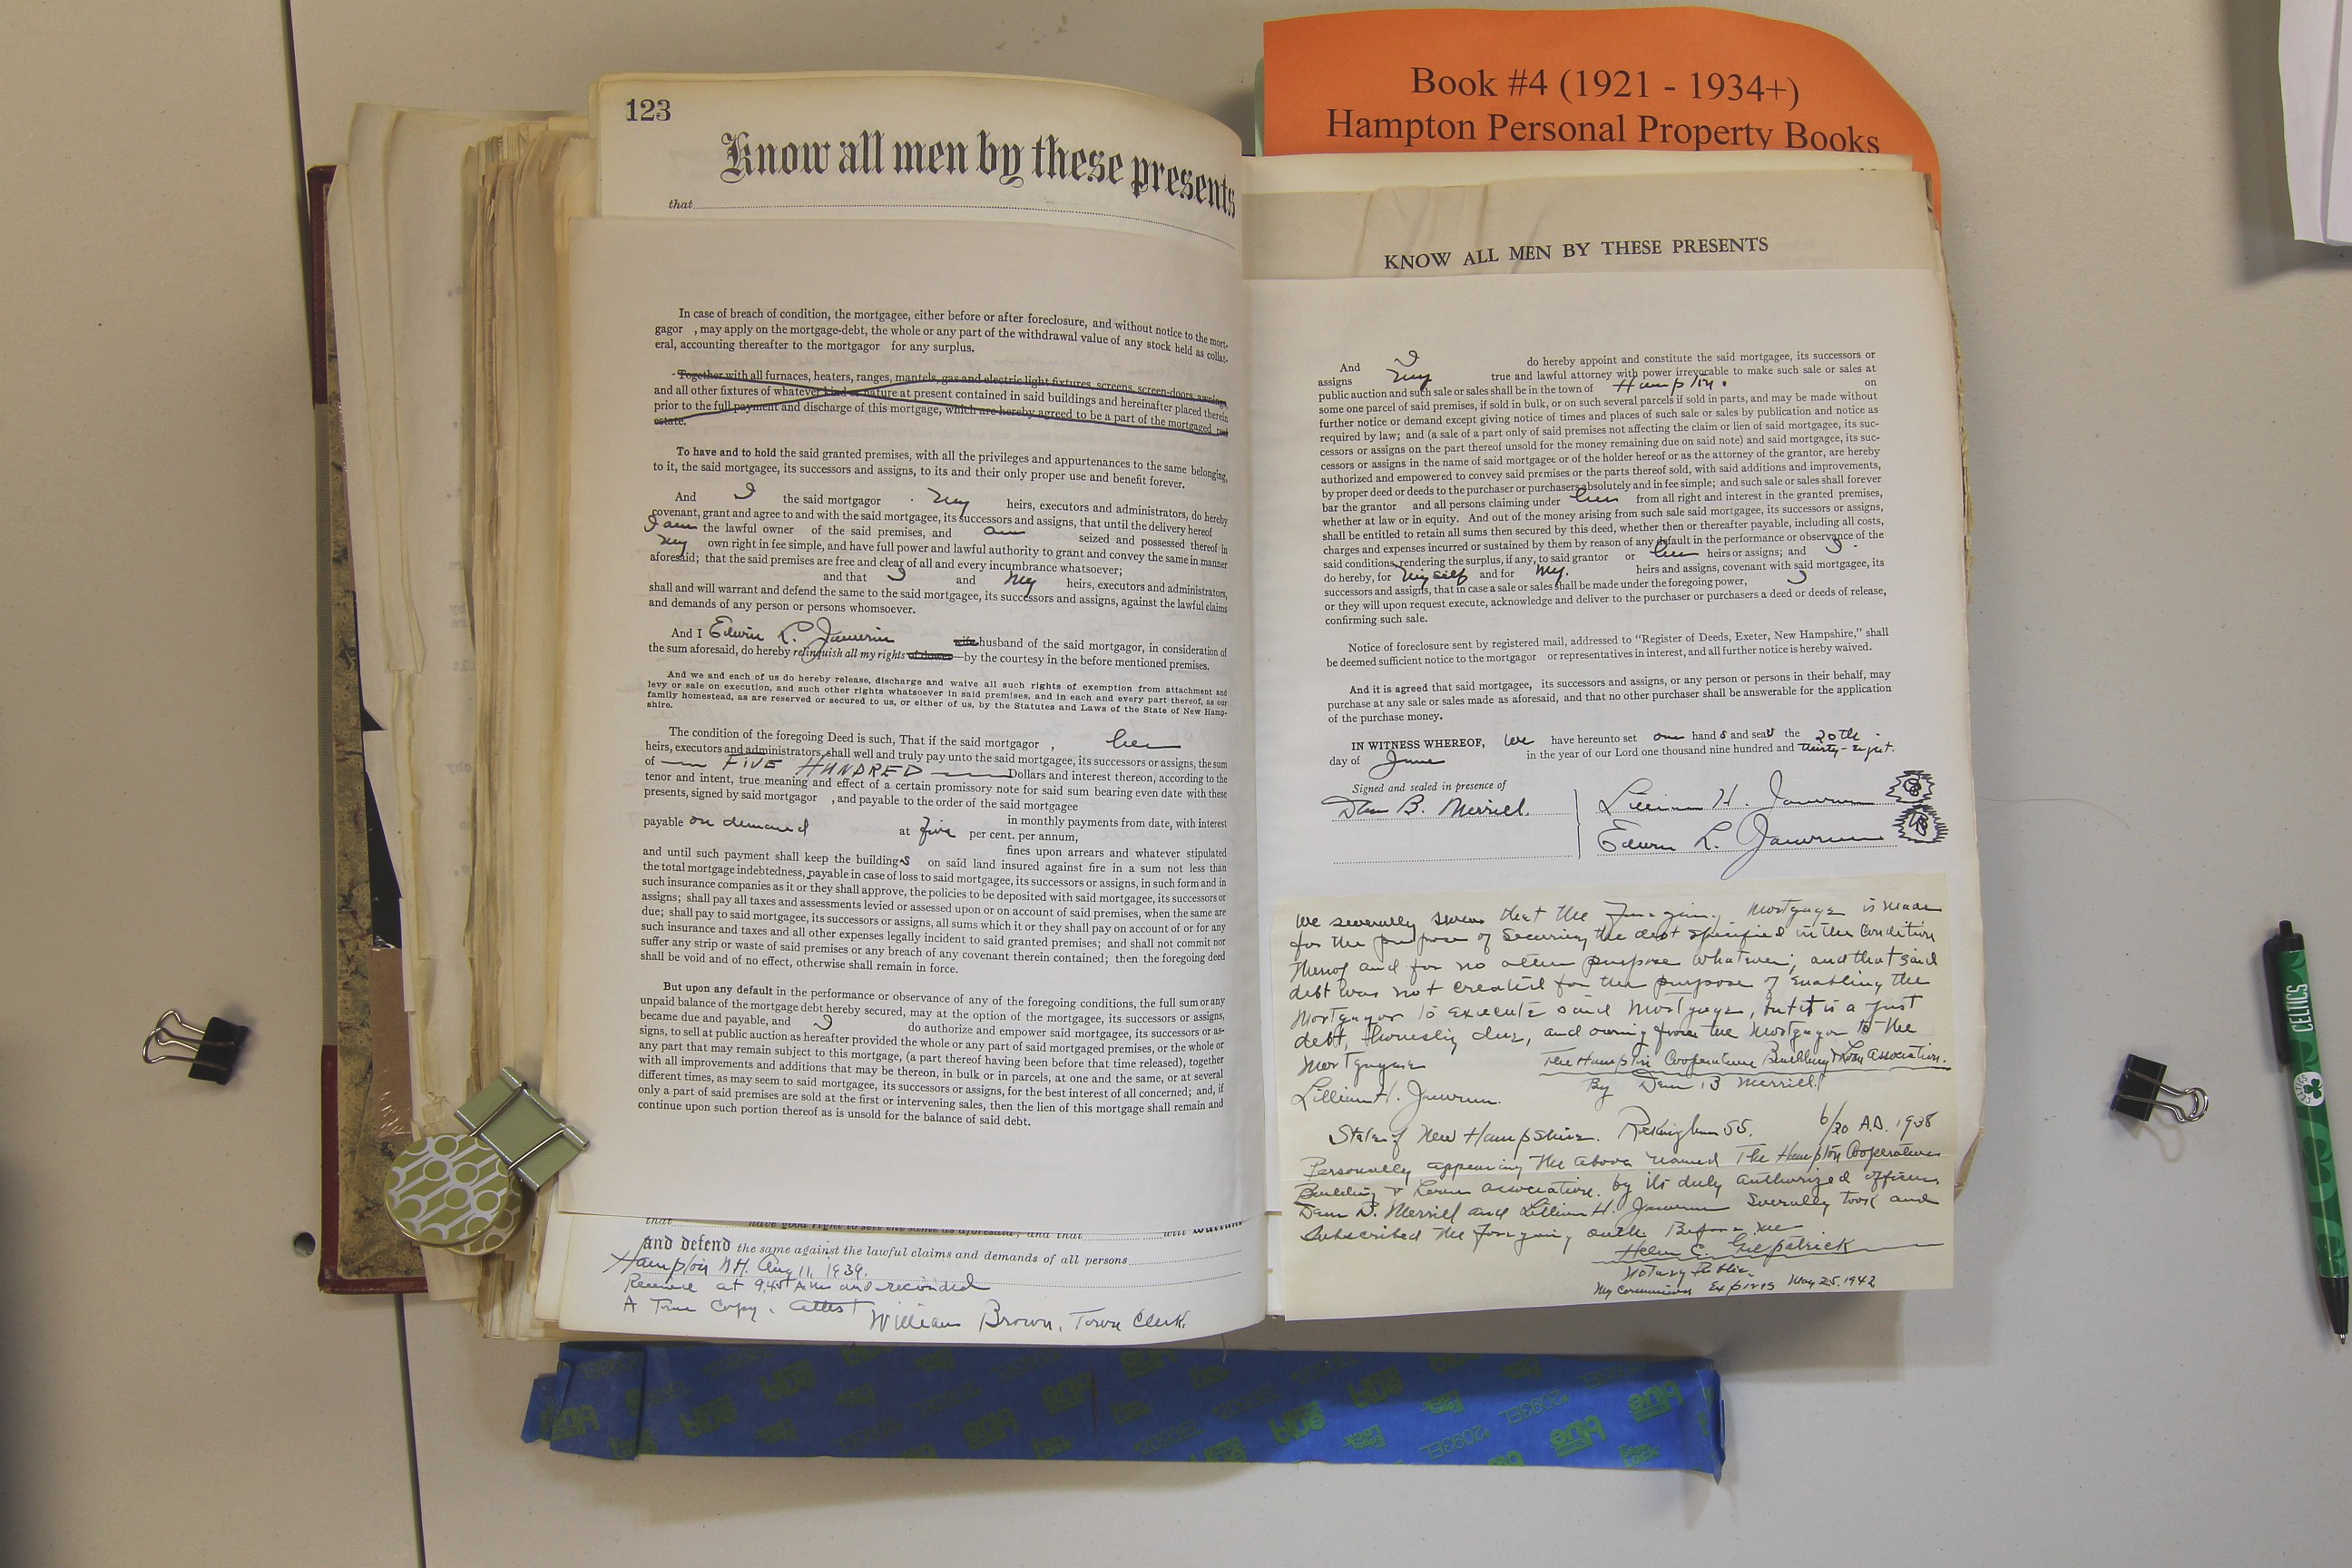 Book #4 (1921 - 1934+)
Hampton Personal Property Books
123
Know all men by these presents
that
In case of breach of condition, the mortgagee, either before or after foreclosure, and without notice to the mort-
gagor , may apply on the mortgage-debt, the whole or any part of the withdrawal value of any stock held as collat-
eral, accounting thereafter to the mortgagor for any surplus.
Together with all furnaces, heaters, ranges, mantels, gas and electric light fixtures, screens, screen-doors, awnings,
and all other fixtures of whatever kind or nature at present contained in said buildings and hereinafter placed therein
prior to the full payment and discharge of this mortgage, which are hereby agreed to be a part of the mortgaged real
estate.
To have and to hold the said granted premises, with all the privileges and appurtenances to the same belonging,
to it, the said mortgagee, its successors and assigns, to its and their only proper use and benefit forever.
And I the said mortgagor my heirs, executors and administrators, do hereby
covenant, grant and agree to and with the said mortgagee, its successors and assigns, that until the delivery hereof
I am the lawful owner of the said premises, and am seized and possessed thereof in
my own right in fee simple, and have full power and lawful authority to grant and convey the same in manner
aforesaid; that the said premises are free and clear of all and every incumbrance whatsoever;
and that I and my heirs, executors and administrators,
shall and will warrant and defend the same to the said mortgagee, its successors and assigns, against the lawful claims
and demands of any person or persons whomsoever.
And I Edwin L. Janvrin wife husband of the said mortgagor, in consideration of
the sum aforesaid, do hereby relinquish all my rights of dower by the courtesy in the before mentioned premises.
And we and each of us do hereby release, discharge and waive all such rights of exemption from attachment and
levy or sale on execution, and such other rights whatsoever in said premises, and in each and every part thereof, as our
family homestead, as are reserved or secured to us, or either of us, by the Statutes and Laws of the State of New Hamp-
shire.
The condition of the foregoing Deed is such, That if the said mortgagor , her
heirs, executors and administrators, shall well and truly pay unto the said mortgagee, its successors or assigns, the sum
of FIVE HUNDRED Dollars and interest thereon, according to the
tenor and intent, true meaning and effect of a certain promissory note for said sum bearing even date with these
presents, signed by said mortgagor , and payable to the order of the said mortgagee
in monthly payments from date, with interest
payable on demand at five per cent. per annum,
fines upon arrears and whatever stipulated
and until such payment shall keep the buildings on said land insured against fire in a sum not less than
the total mortgage indebtedness, payable in case of loss to said mortgagee, its successors or assigns, in such form and in
such insurance companies as it or they shall approve, the policies to be deposited with said mortgagee, its successors or
assigns; shall pay all taxes and assessments levied or assessed upon or on account of said premises, when the same are
due; shall pay to said mortgagee, its successors or assigns, all sums which it or they shall pay on account of or for any
such insurance and taxes and all other expenses legally incident to said granted premises; and shall not commit nor
suffer any strip or waste of said premises or any breach of any covenant therein contained; then the foregoing deed
shall be void and of no effect, otherwise shall remain in force.
But upon any default in the performance or observance of any of the foregoing conditions, the full sum or any
unpaid balance of the mortgage debt hereby secured, may at the option of the mortgagee, its successors or assigns,
became due and payable, and I do authorize and empower said mortgagee, its successors or as-
signs, to sell at public auction as hereafter provided the whole or any part of said mortgaged premises, or the whole or
any part that may remain subject to this mortgage, (a part thereof having been before that time released), together
with all improvements and additions that may be thereon, in bulk or in parcels, at one and the same, or at several
different times, as may seem to said mortgagee, its successors or assigns, for the best interest of all concerned; and, if
only a part of said premises are sold at the first or intervening sales, then the lien of this mortgage shall remain and
continue upon such portion thereof as is unsold for the balance of said debt.
that have good right to sell the same as aforesaid; and that will warrant
and defend the same against the lawful claims and demands of all persons
Hampton N.H. Aug 11, 1939.
Received at 9.45 A.M. and recorded
A True Copy, Attest William Brown, Town Clerk.
KNOW ALL MEN BY THESE PRESENTS
And I do hereby appoint and constitute the said mortgagee, its successors or
assigns my true and lawful attorney with power irrevocable to make such sale or sales at
public auction and such sale or sales shall be in the town of Hampton. on
some one parcel of said premises, if sold in bulk, or on such several parcels if sold in parts, and may be made without
further notice or demand except giving notice of times and places of such sale or sales by publication and notice as
required by law; and (a sale of a part only of said premises not affecting the claim or lien of said mortgagee, its suc-
cessors or assigns on the part thereof unsold for the money remaining due on said note) and said mortgagee, its suc-
cessors or assigns in the name of said mortgagee or of the holder hereof or as the attorney of the grantor, are hereby
authorized and empowered to convey said premises or the parts thereof sold, with said additions and improvements,
by proper deed or deeds to the purchaser or purchasers absolutely and in fee simple; and such sale or sales shall forever
bar the grantor and all persons claiming under her from all right and interest in the granted premises,
whether at law or in equity. And out of the money arising from such sale said mortgagee, its successors or assigns,
shall be entitled to retain all sums then secured by this deed, whether then or thereafter payable, including all costs,
charges and expenses incurred or sustained by them by reason of any default in the performance or observance of the
said conditions, rendering the surplus, if any, to said grantor or her heirs or assigns; and I
do hereby, for myself and for my heirs and assigns, covenant with said mortgagee, its
successors and assigns, that in case a sale or sales shall be made under the foregoing power, I
or they will upon request execute, acknowledge and deliver to the purchaser or purchasers a deed or deeds of release,
confirming such sale.
Notice of foreclosure sent by registered mail, addressed to "Register of Deeds, Exeter, New Hampshire," shall
be deemed sufficient notice to the mortgagor or representatives in interest, and all further notice is hereby waived.
And it is agreed that said mortgagee, its successors and assigns, or any person or persons in their behalf, may
purchase at any sale or sales made as aforesaid, and that no other purchaser shall be answerable for the application
of the purchase money.
IN WITNESS WHEREOF, we have hereunto set our hand s and seal the 20th
day of June in the year of our Lord one thousand nine hundred and thirty-eight.
Signed and sealed in presence of
Dean B. Merrill. Lillian H. Janvrin
Edwin L. Janvrin
We severally swear that the Foregoing Mortgage is made
for the purpose of Securing the debt specified in the Condition
thereof and for no other purpose whatever; and that said
debt was not created for the purpose of enabling the
Mortgagor to execute said Mortgage, but it is a just
debt, honestly due, and owing from the Mortgagor to the
Mortgagee The Hampton Cooperative Building & Loan Association.
By Dean B Merrill
Lillian H. Janvrin.
State of New Hampshire. Rockingham SS. 6/20 A.D. 1938
Personally appearing the above named The Hampton Cooperative
Building & Loan association. by its duly authorized officer
Dean B. Merrill and Lillian H. Janvrin Severally took and
Subscribed the Foregoing oath Before me
Helen C. Gilpatrick
Notary Public
My Commission Expires May 25. 1942
CELTICS